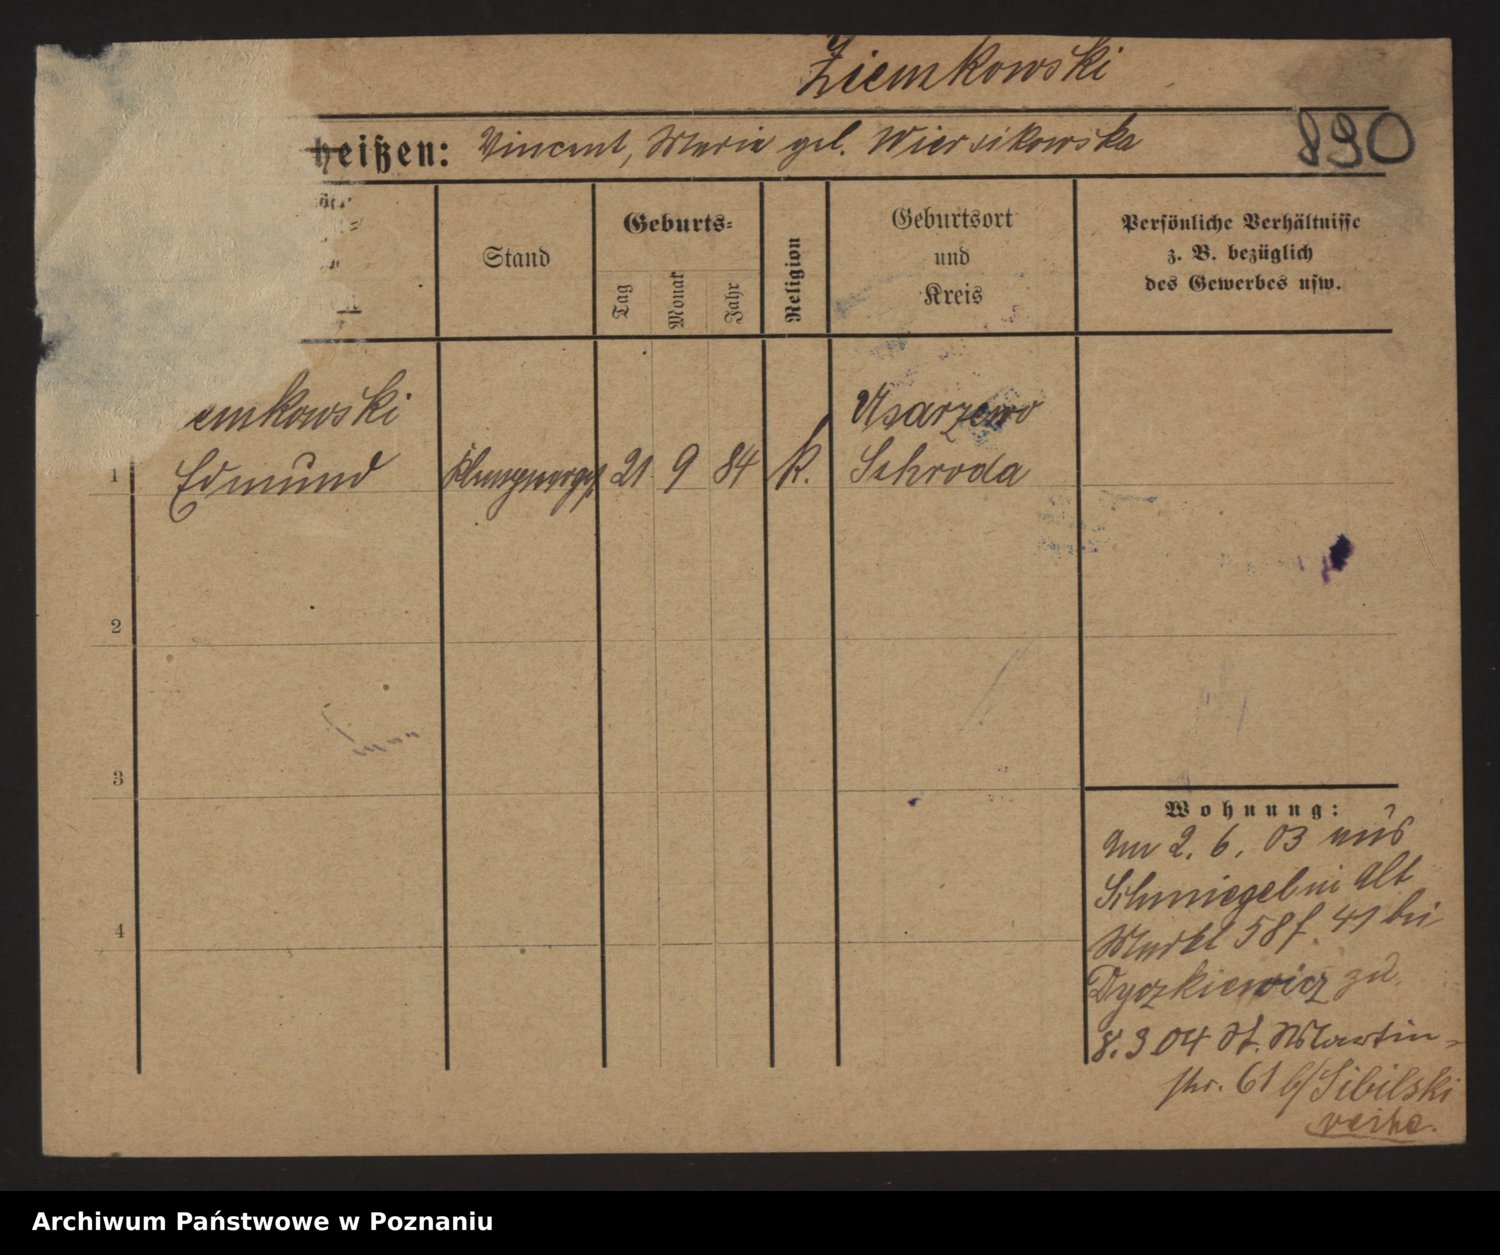 Ziemkowski
heißen: Vincent, Maria geb. Wiersikowska 890
Stand
Geburts-
Tag
Monat
Jahr
Religion
Geburtsort
und
Kreis
Persönliche Verhältnisse
z. B. bezüglich
des Gewerbes usw.
emkowski
Usarzewo
1 Edmund 21 9 84 k. Schroda
2
3
4
Wohnung:
am 2. 6. 03 aus
Schmiegel in Alt
Markt 58 f. 41 bei
Dyczkiewicz zu
8. 3 04 St. Martin-
str. 61 b/ Sibilski
Archiwum Państwowe w Poznaniu